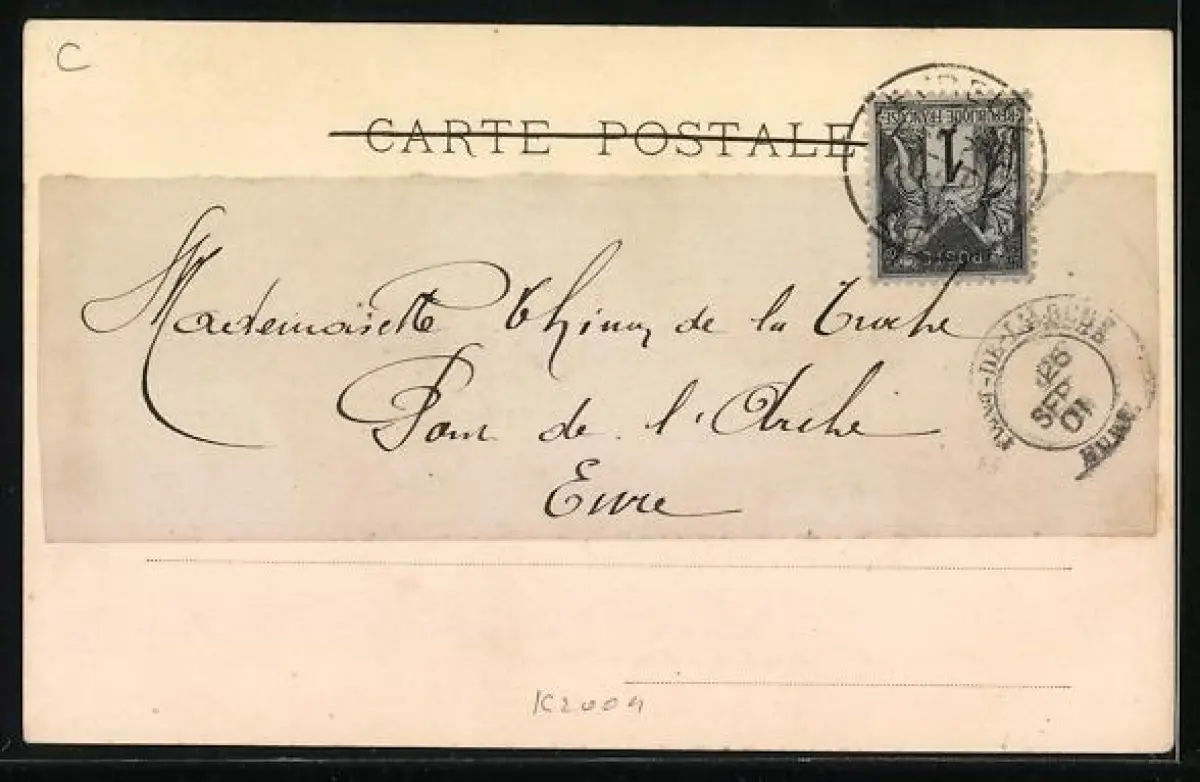 C
CARTE POSTALE
REPUBLIQUE FRANÇAISE
1
POSTES
Mademoiselle Thiroux de la Troche
Pont de l'Arche
Eure
PONT-DE-L'ARCHE
26
SEPT
01
EURE
K2009